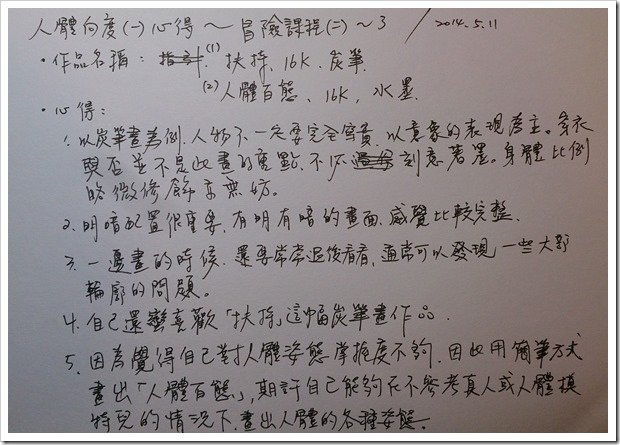 人體向度(一)心得～冒險課程(二)～3 / 2014.5.11
・作品名稱：(1)扶持、16K、炭筆.
(2)人體百態、16K、水墨.
・心得：
1. 以炭筆畫為例，人物不一定要完全寫實，以意象的表現為主。穿衣
與否並不是此畫的重點，不必刻意著墨。身體比例
略微修飾亦無妨。
2. 明暗配置很重要，有明有暗的畫面，感覺比較完整.
3. 一邊畫的時候，還要常常退後看看，通常可以發現一些大部
輪廓的問題。
4. 自己還蠻喜歡「扶持」這幅炭筆畫作品.
5. 因為覺得自己對人體姿態掌握度不夠，因此用簡筆方式
畫出「人體百態」，期許自己能夠在不參考真人或人體模
特兒的情況下，畫出人體的各種姿態.